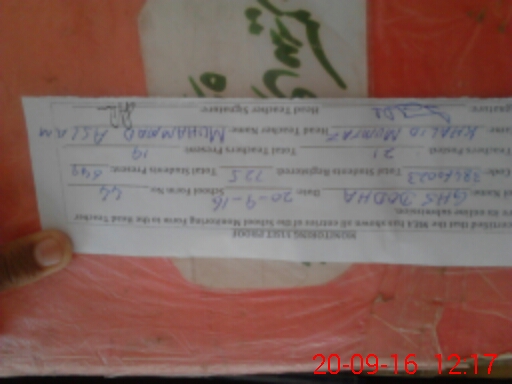 MONITORING VISIT PROOF
certified that the MEA has shown all entries of the School Monitoring Form to the Head Teacher
its online submission.
Name: GHS DODHA Date: 20-9-16 School Form No: 44
Code: Total Students Registered: 725 Total Students Present:
Teachers Posted: 21 Total Teachers Present: 19
KHALID MUMTAZ Head Teacher Name: MUHAMMAD ASLAM
Head Teacher Signature:
20-09-16 12:17